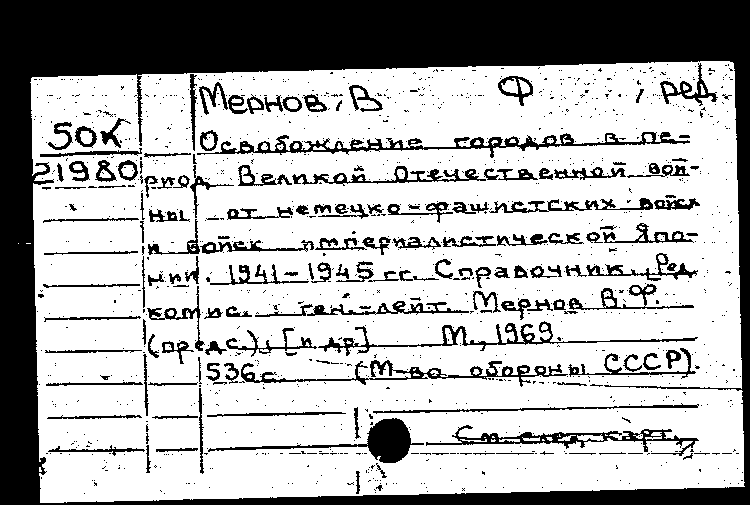 Мернов, В Ф , ред.
50К
Освобождение городов в пе-
21980
риод Великой Отечественной вой-
ны от немецко-фашистских войск
и войск империалистической Япо-
нии. 1941-1945 гг. Справочник. [Ред.
комис. : ген.-лейт. Мернов В.Ф.
(предс.), [и др.] М., 1969.
536с. (М-во обороны СССР).
См. след. карт.